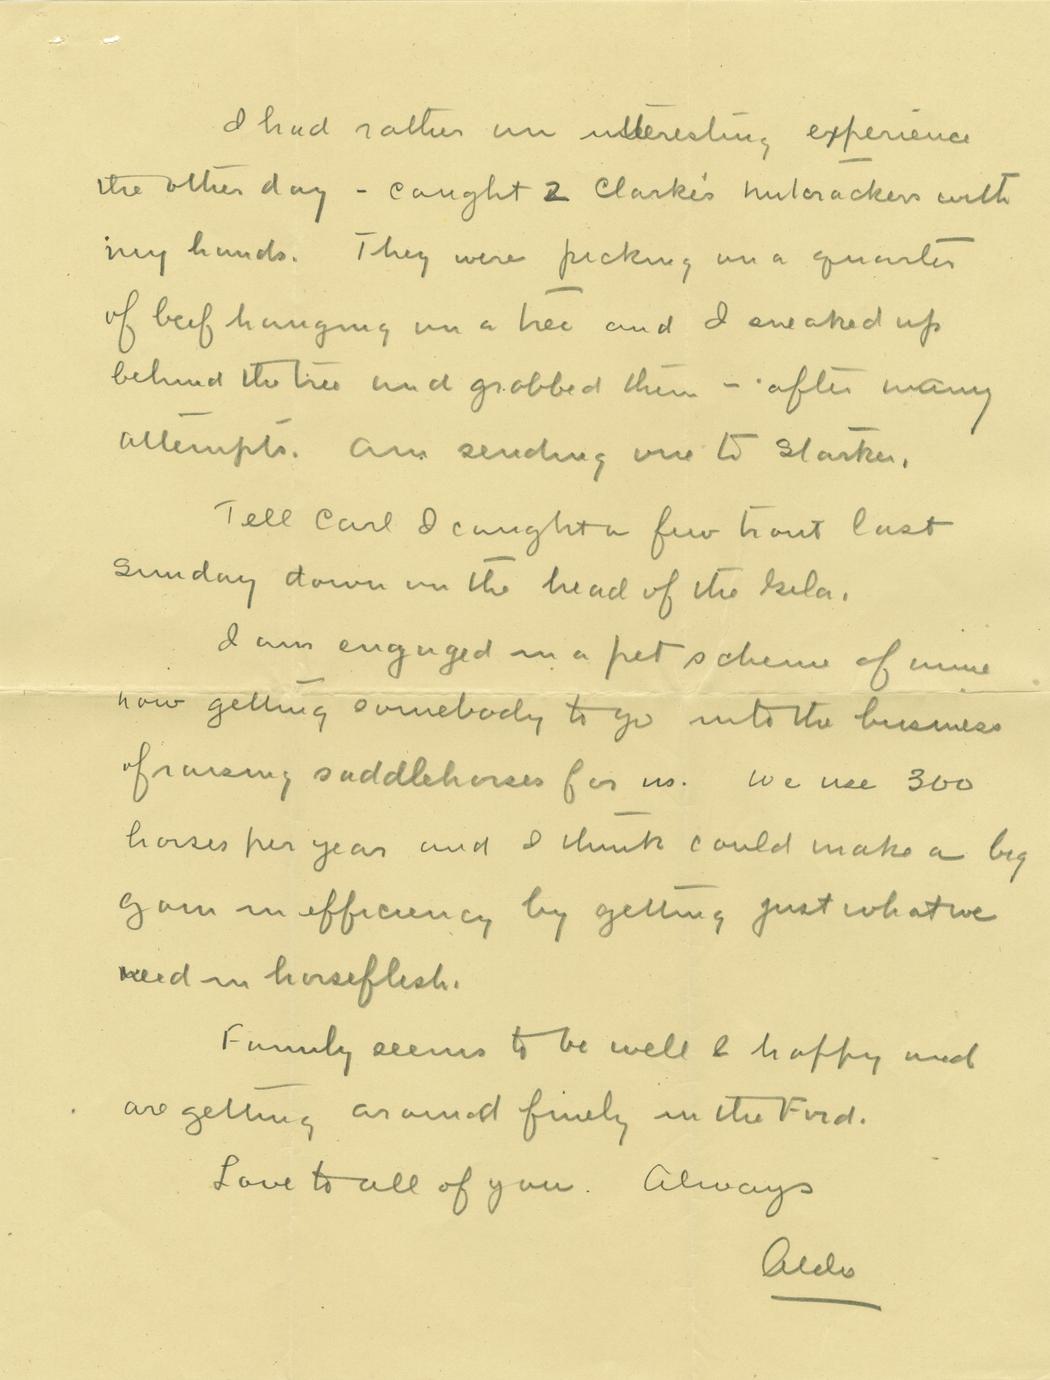 I had rather an interesting experience
the other day - caught 2 Clarke's nutcrackers with
my hands. They were picking on a quarter
of beef hanging on a tree and I sneaked up
behind the tree and grabbed them - after many
attempts. Am sending one to Starker.
Tell Carl I caught a few trout last
Sunday down on the head of the Gila.
I am engaged in a pet scheme of mine
now getting somebody to go into the business
of raising saddlehorses for us. We use 300
horses per year and I think could make a big
gain in efficiency by getting just what we
need in horseflesh.
Family seems to be well & happy and
are getting around finely in the Ford.
Love to all of you. Always
Aldo